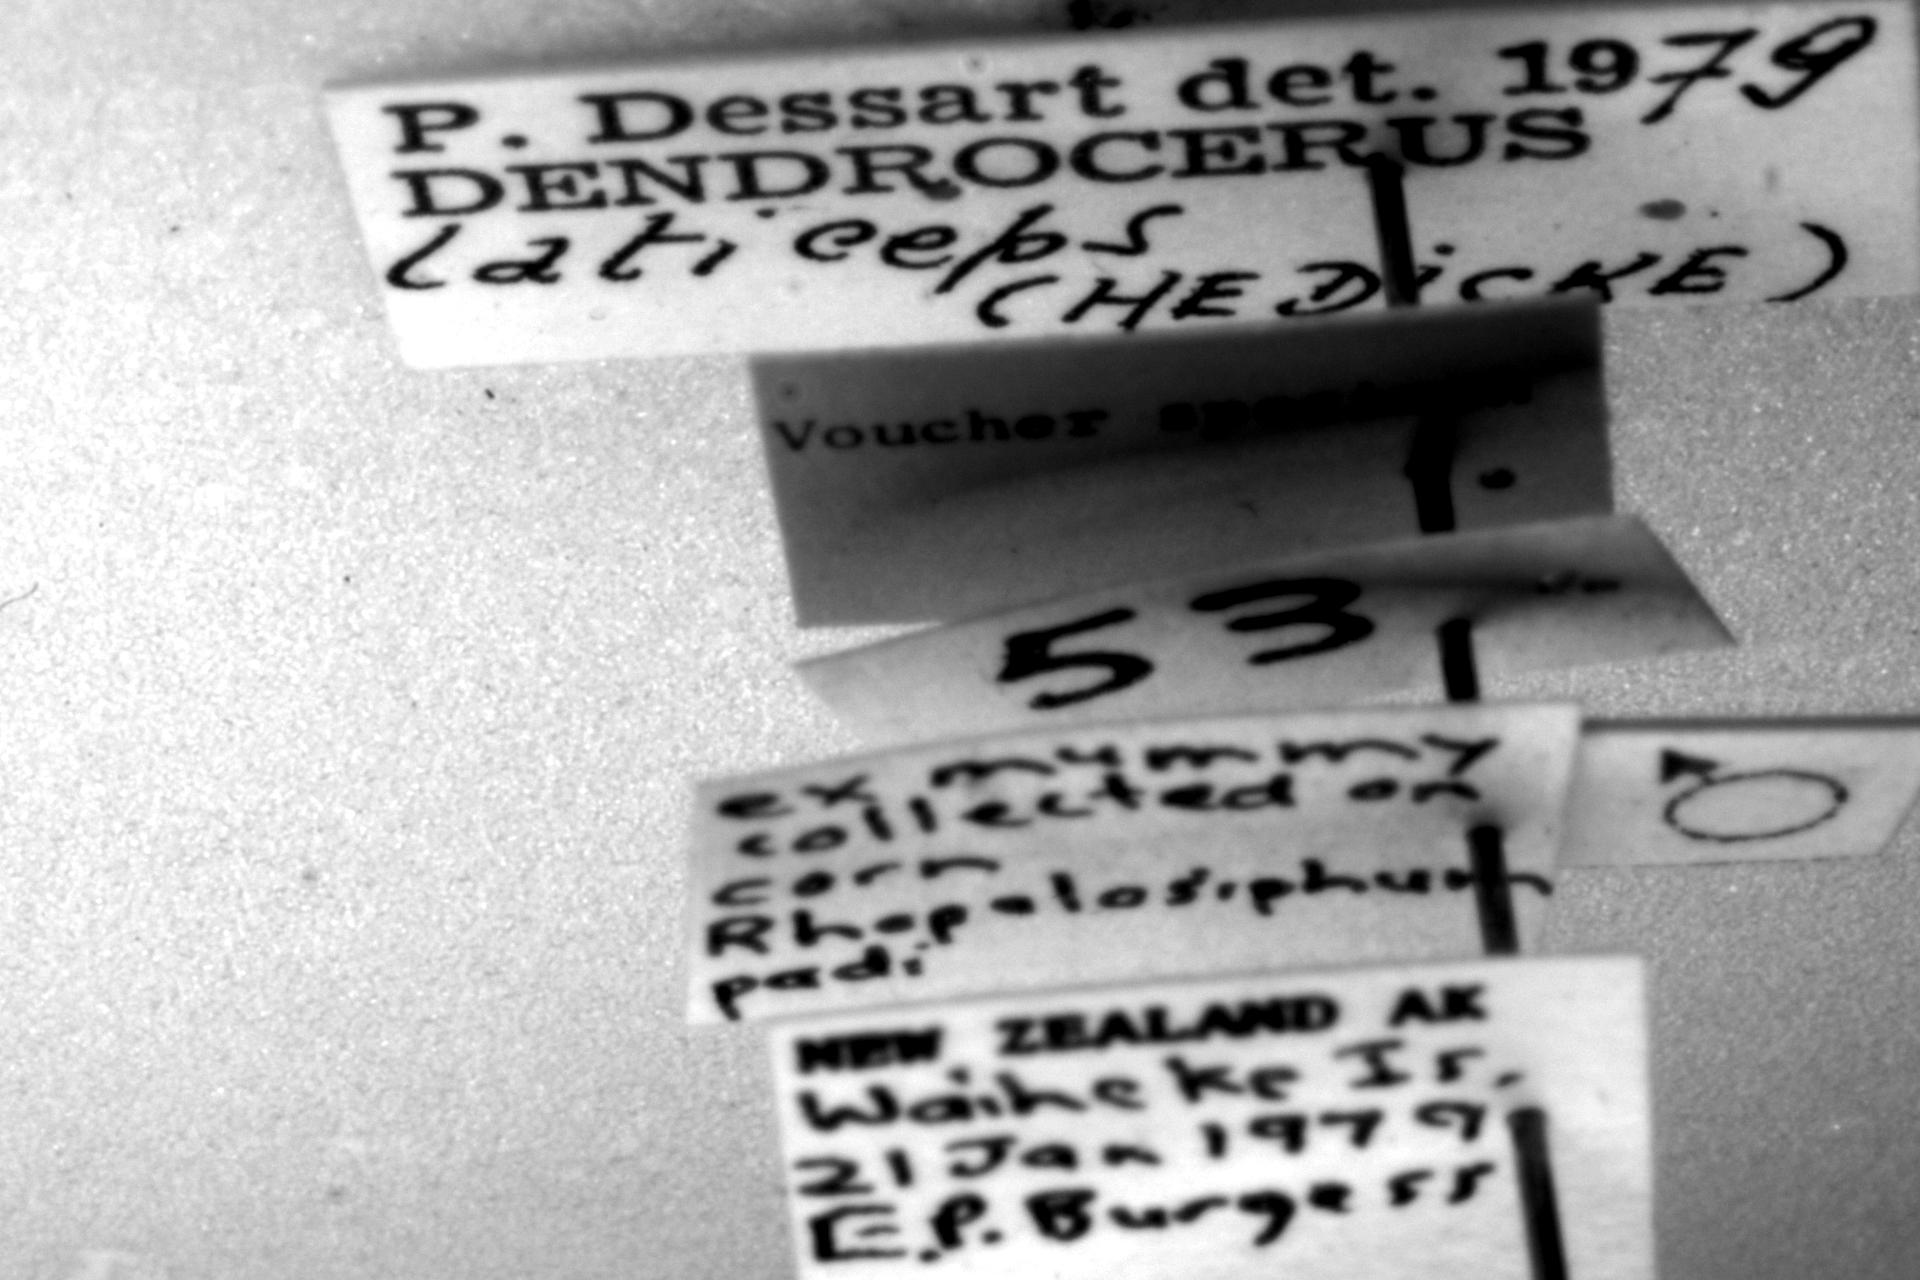 P. Dessart det. 1979
DENDROCERUS
laticeps
(HEDiCKE)
Voucher specimen
53
ex mummy
collected on
corn
Rhopalosiphum
padi
♂
NEW ZEALAND AK
Waiheke Is.
21 Jan 1979
E.P. Burgess